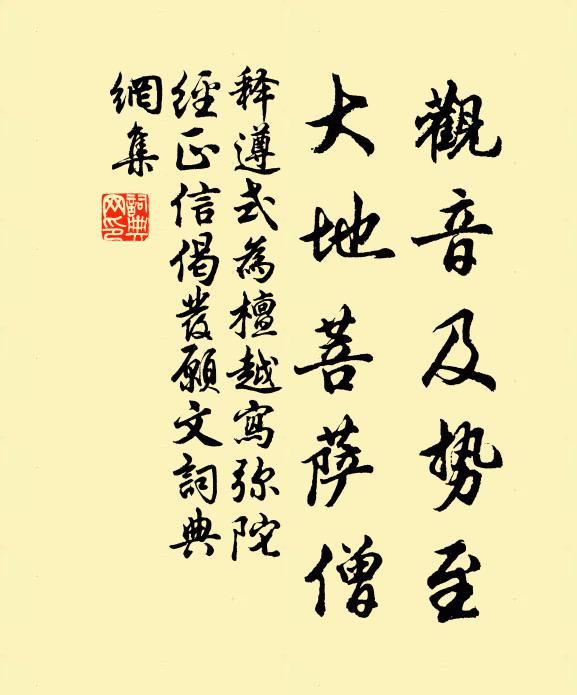 觀音及勢至
大地菩萨僧
释遵式為檀越寫弥陀
經正信偈發願文詞典
網集
詞典
网印